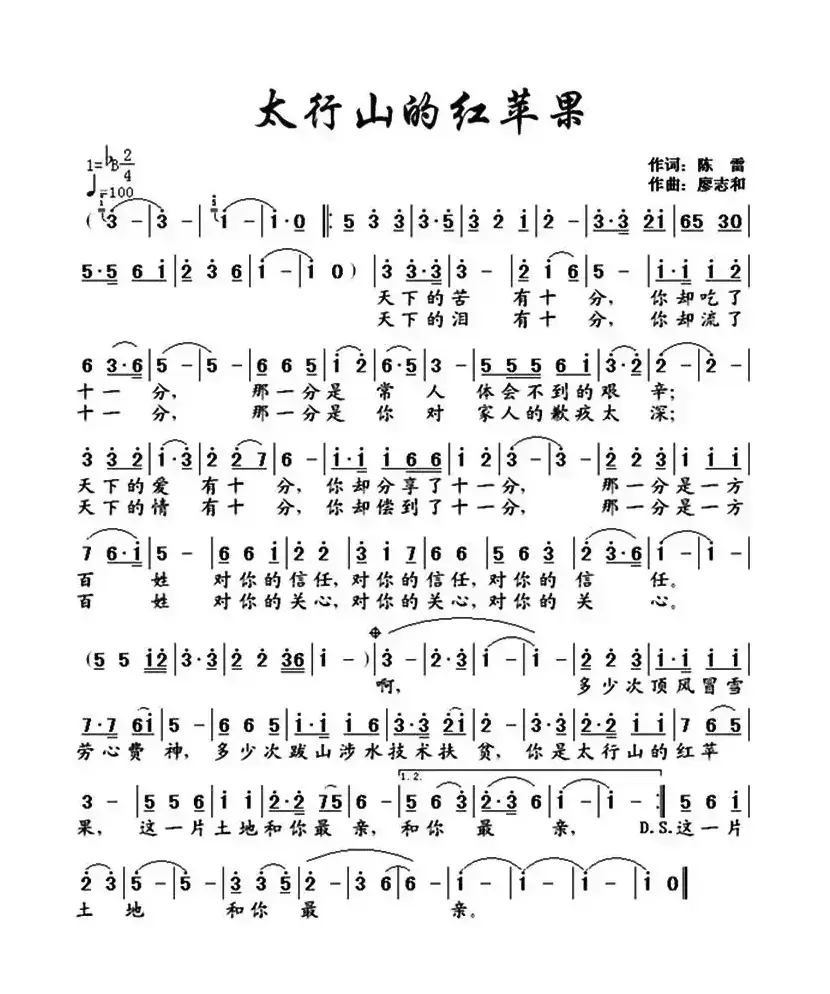 太行山的红苹果
1=♭B 2/4
♩=100
作词：陈 雷
作曲：廖志和
( 3 - | 3 - | i - | i · 0 ‖: 5 3 3 | 3 · 5 | 3 2 i | 2 - | 3 · 3 2 i | 6 5 3 0 |
5 · 5 6 i | 2 3 6 | i - | i 0 ) | 3 3 · 3 | 3 - | 2 i 6 | 5 - | i · i i 2 |
天下的苦 有十分， 你却吃了
天下的泪 有十分， 你却流了
6 3 · 6 | 5 - | 5 - | 6 6 5 | i 2 | 6 · 5 | 3 - | 5 5 5 6 i | 2 - | 2 - |
十一分， 那一分是 常 人 体会不到的艰 辛；
十一分， 那一分是 你 对 家人的歉疚太 深；
3 3 2 | i · 3 | 2 2 7 | 6 - | i · i i 6 6 | i 2 | 3 - | 3 - | 2 2 3 | i i i |
天下的爱 有十 分，你却分享了十一分， 那一分是一方
天下的情 有十 分，你却偿到了十一分， 那一分是一方
7 6 · i | 5 - | 6 6 i | 2 2 | 3 i 7 | 6 6 | 5 6 3 | 2 3 · 6 | i - | i - |
百 姓 对你的信任，对你的信任，对你的 信 任。
百 姓 对你的关心，对你的关心，对你的 关 心。
( 5 5 i 2 | 3 · 3 | 2 2 3 6 | i - ) | 3 - | 2 · 3 | i - | i - | 2 2 3 | i · i i i |
啊， 多少次顶风冒雪
7 · 7 6 i | 5 - | 6 6 5 | i · i i 6 | 3 · 3 2 i | 2 - | 3 · 3 | 2 · 2 i i | 7 6 5 |
劳心费 神，多少次跋山涉水技术扶 贫，你是太行山的红苹
1.2.
3 - | 5 5 5 | i i | 2 · 2 7 5 | 6 - | 5 6 3 | 2 · 3 6 | i - | i - :‖ 5 6 i |
果， 这一片土地和你最亲，和你 最 亲， D.S.这一片
2 3 | 5 - | 5 - | 3 3 5 | 2 - | 3 6 | 6 - | i - | i - | i - | i 0 ‖
土 地 和你 最 亲。